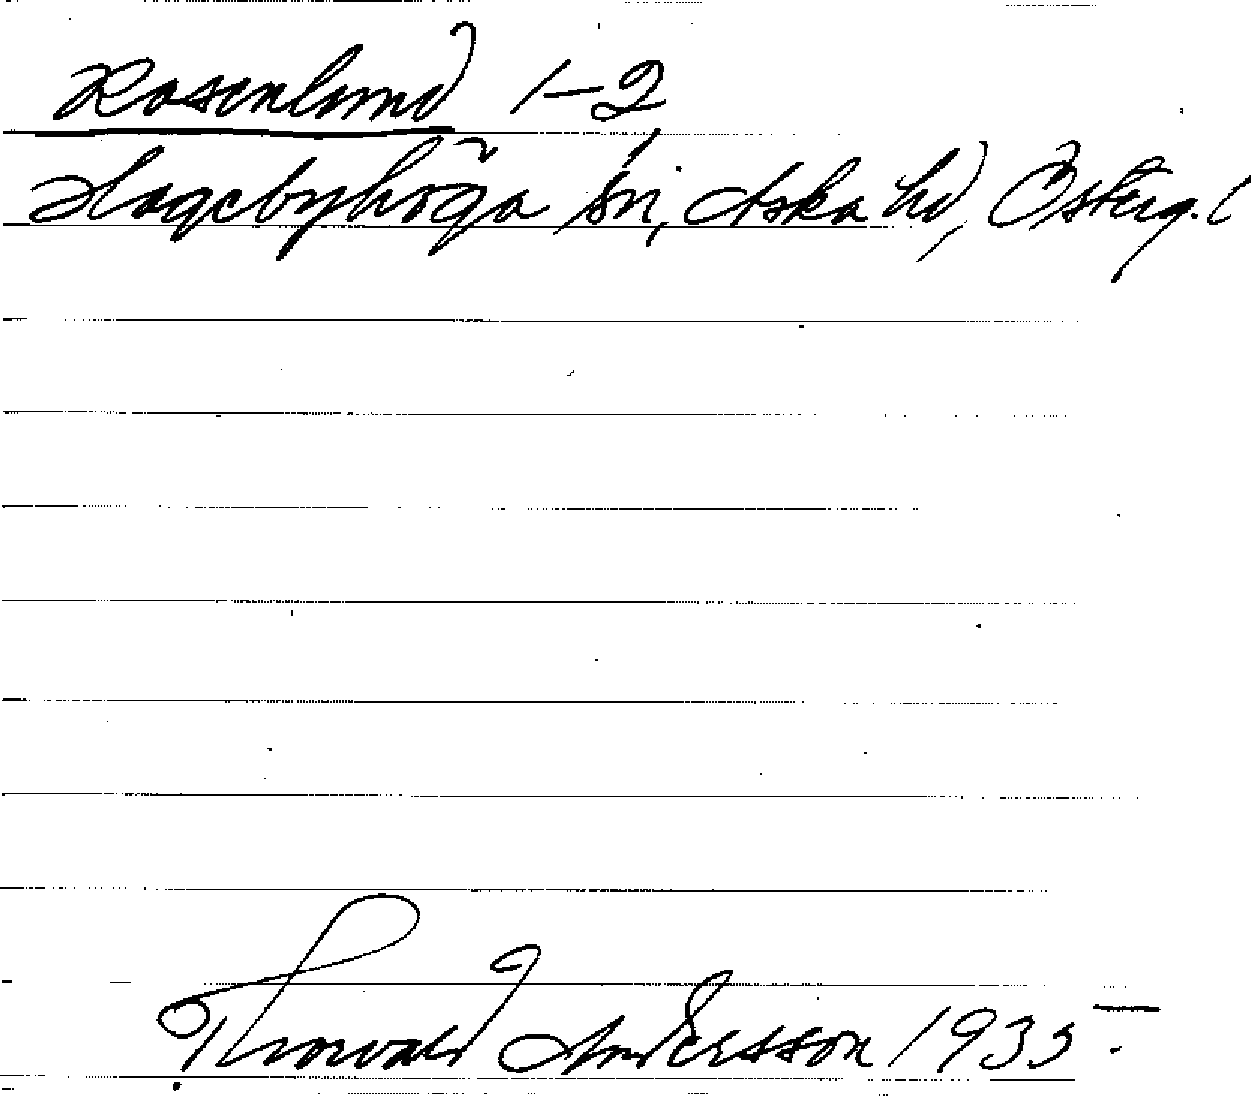 Rosenlund 1-2
Hagebyhöga sn, Aska hd, Österg. l
Thorvald Andersson 1935.